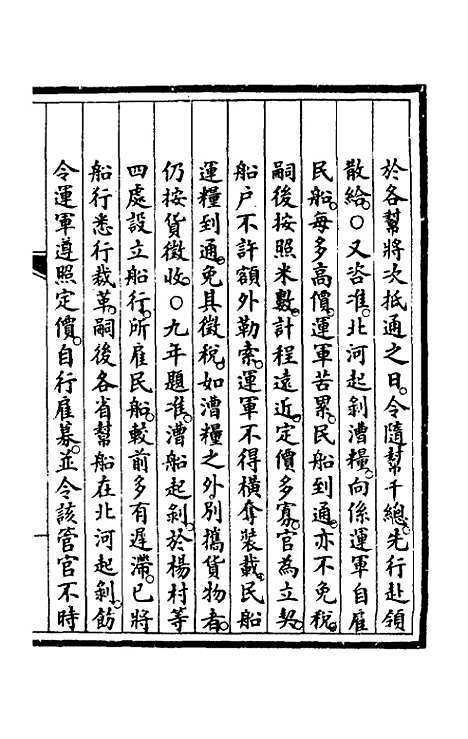 於各幫將次抵通之日。令隨幫千總。先行赴領
散給。○又咨准。北河起剝漕糧。向係運軍自雇
民船。每多高價。運軍苦累。民船到通。亦不免稅。
嗣後按照米數。計程遠近。定價多寡。官為立契。
船戶不許額外勒索。運軍不得橫奪裝載。民船
運糧到通。免其徵稅。如漕糧之外。別攜貨物者。
仍按貨徵收。○九年題准。漕船起剝。於楊村等
四處設立船行。所雇民船。較前多有遲滯。已將
船行悉行裁革。嗣後各省幫船在北河起剝。飭
令運軍遵照定價。自行雇募。並令該管官不時